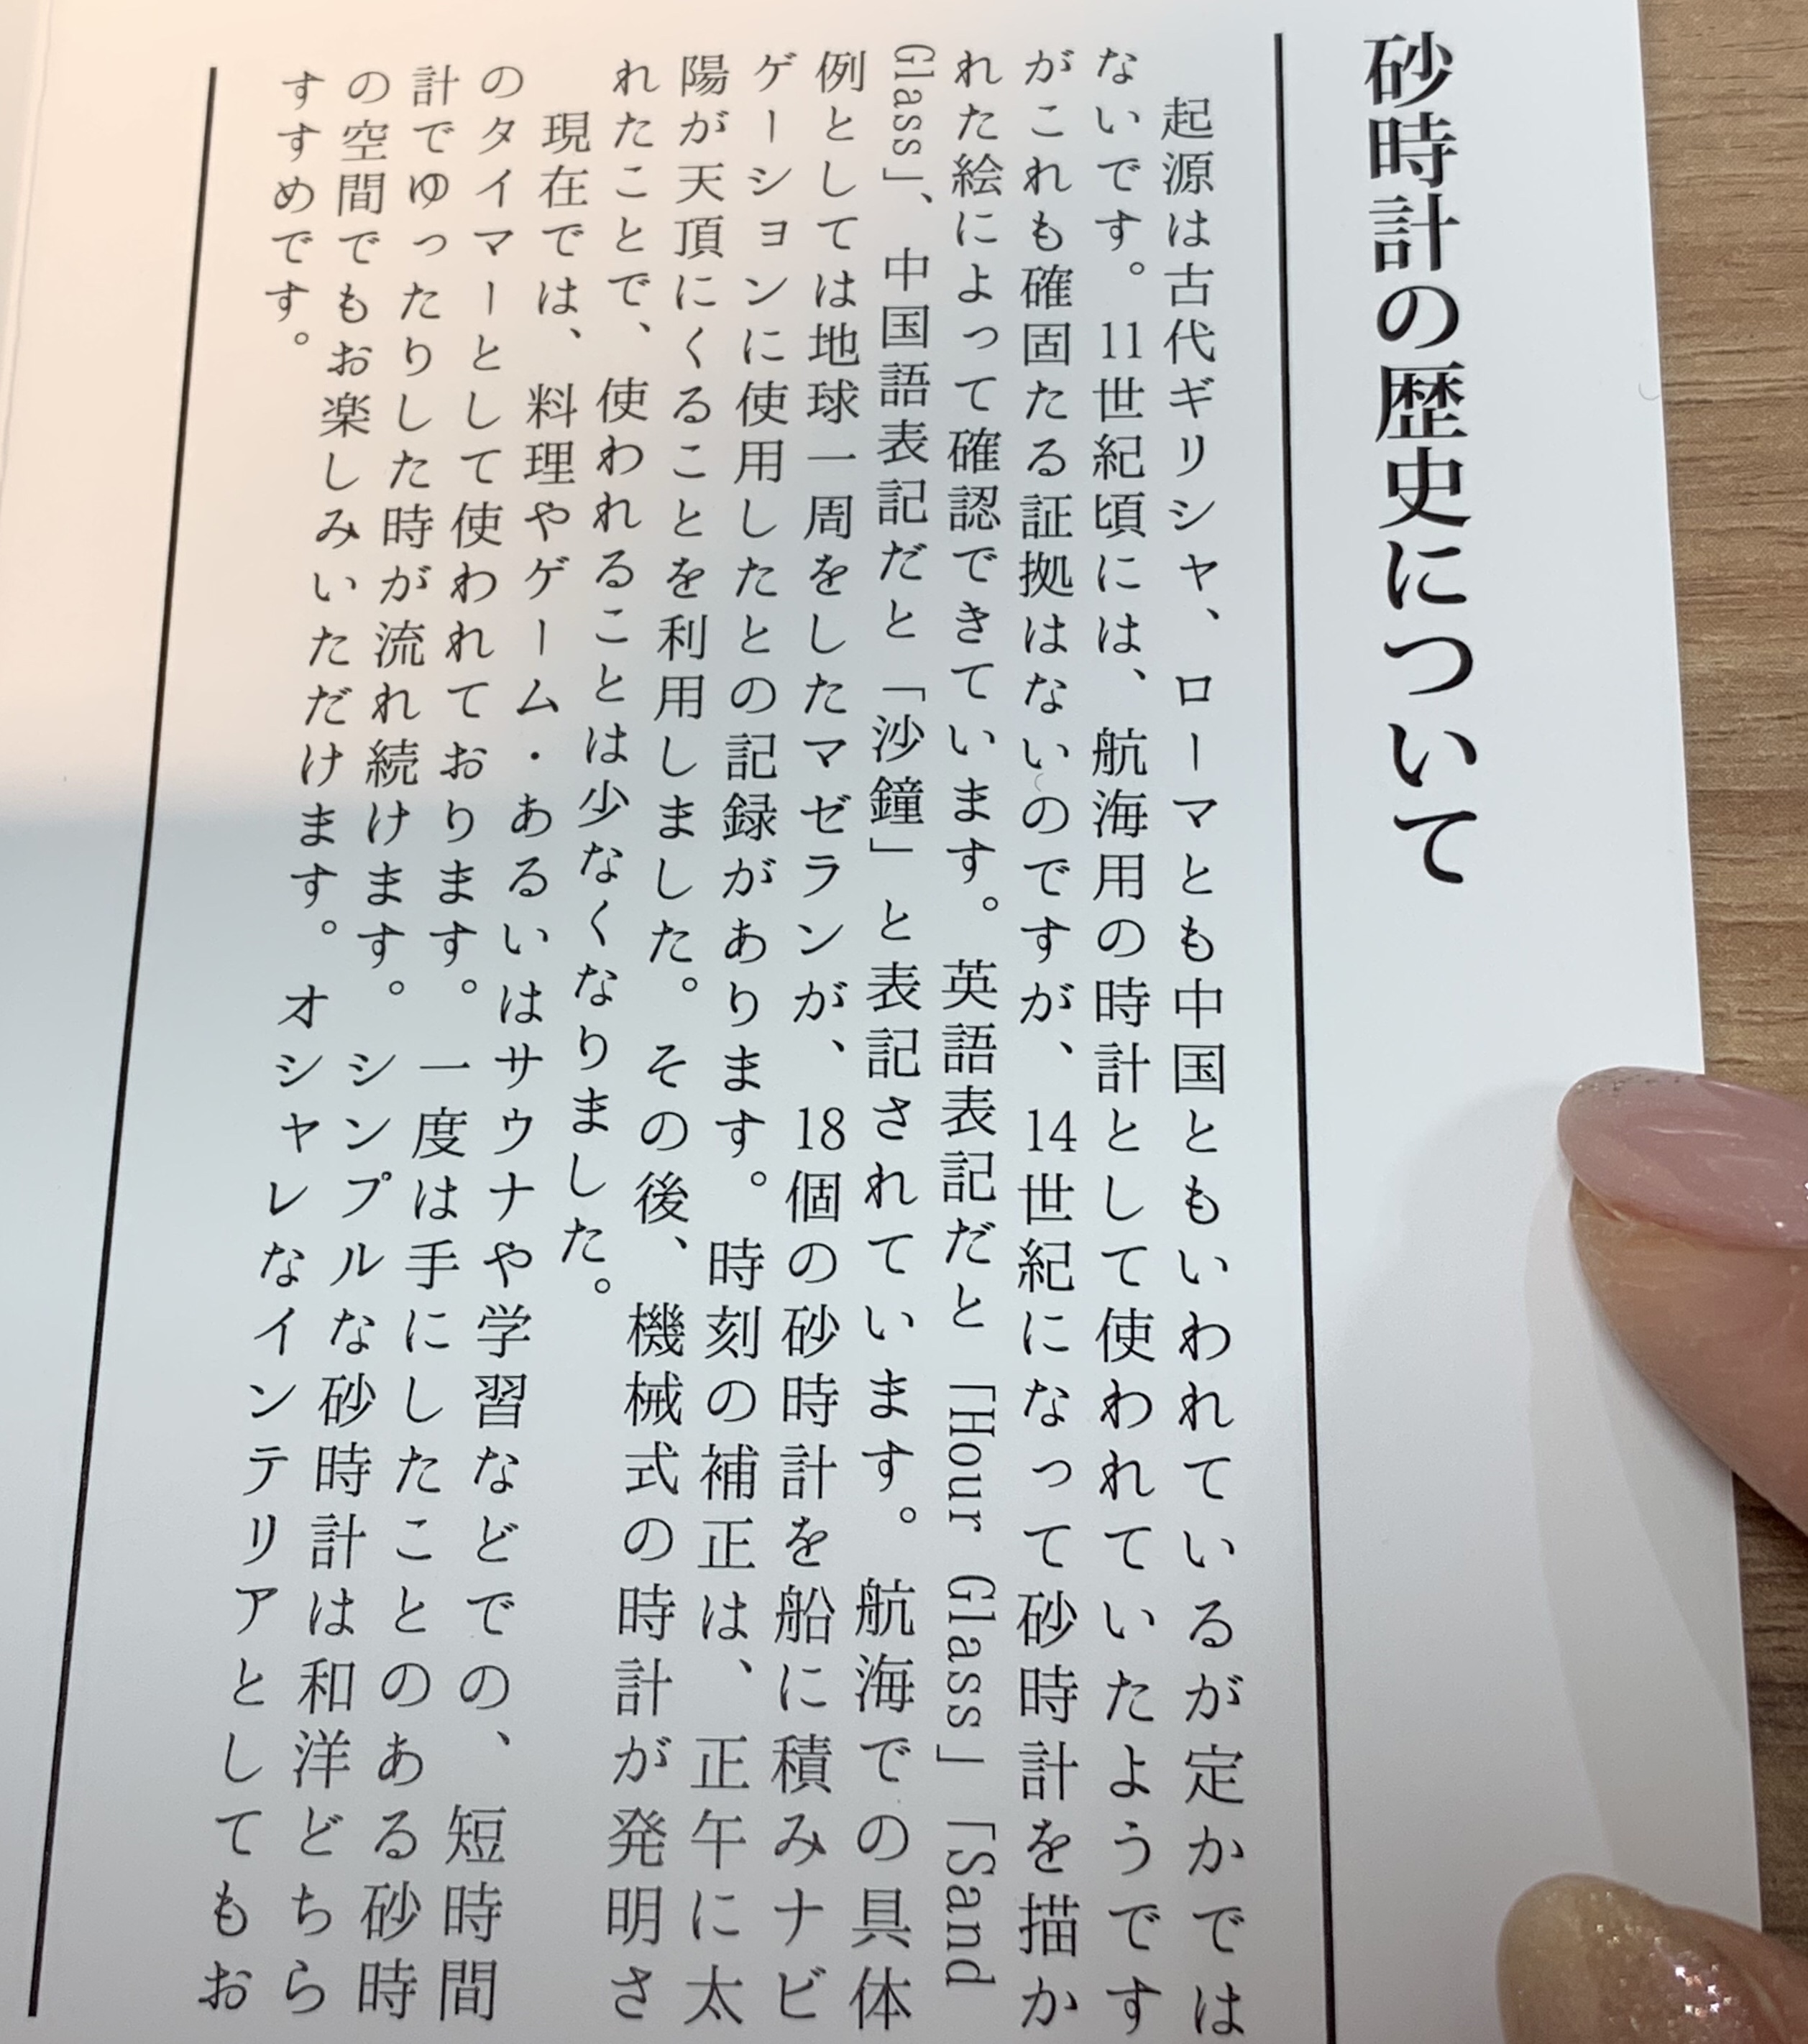 砂時計の歴史について
起源は古代ギリシャ、ローマとも中国ともいわれているが定かでは
ないです。11世紀頃には、航海用の時計として使われていたようです
がこれも確固たる証拠はないのですが、14世紀になって砂時計を描か
れた絵によって確認できています。英語表記だと「Hour Glass」「Sand
Glass」、中国語表記だと「沙鐘」と表記されています。航海での具体
例としては地球一周をしたマゼランが、18個の砂時計を船に積みナビ
ゲーションに使用したとの記録があります。時刻の補正は、正午に太
陽が天頂にくることを利用しました。その後、機械式の時計が発明さ
れたことで、使われることは少なくなりました。
現在では、料理やゲーム・あるいはサウナや学習などでの、短時間
のタイマーとして使われております。一度は手にしたことのある砂時
計でゆったりした時が流れ続けます。シンプルな砂時計は和洋どちら
の空間でもお楽しみいただけます。オシャレなインテリアとしてもお
すすめです。